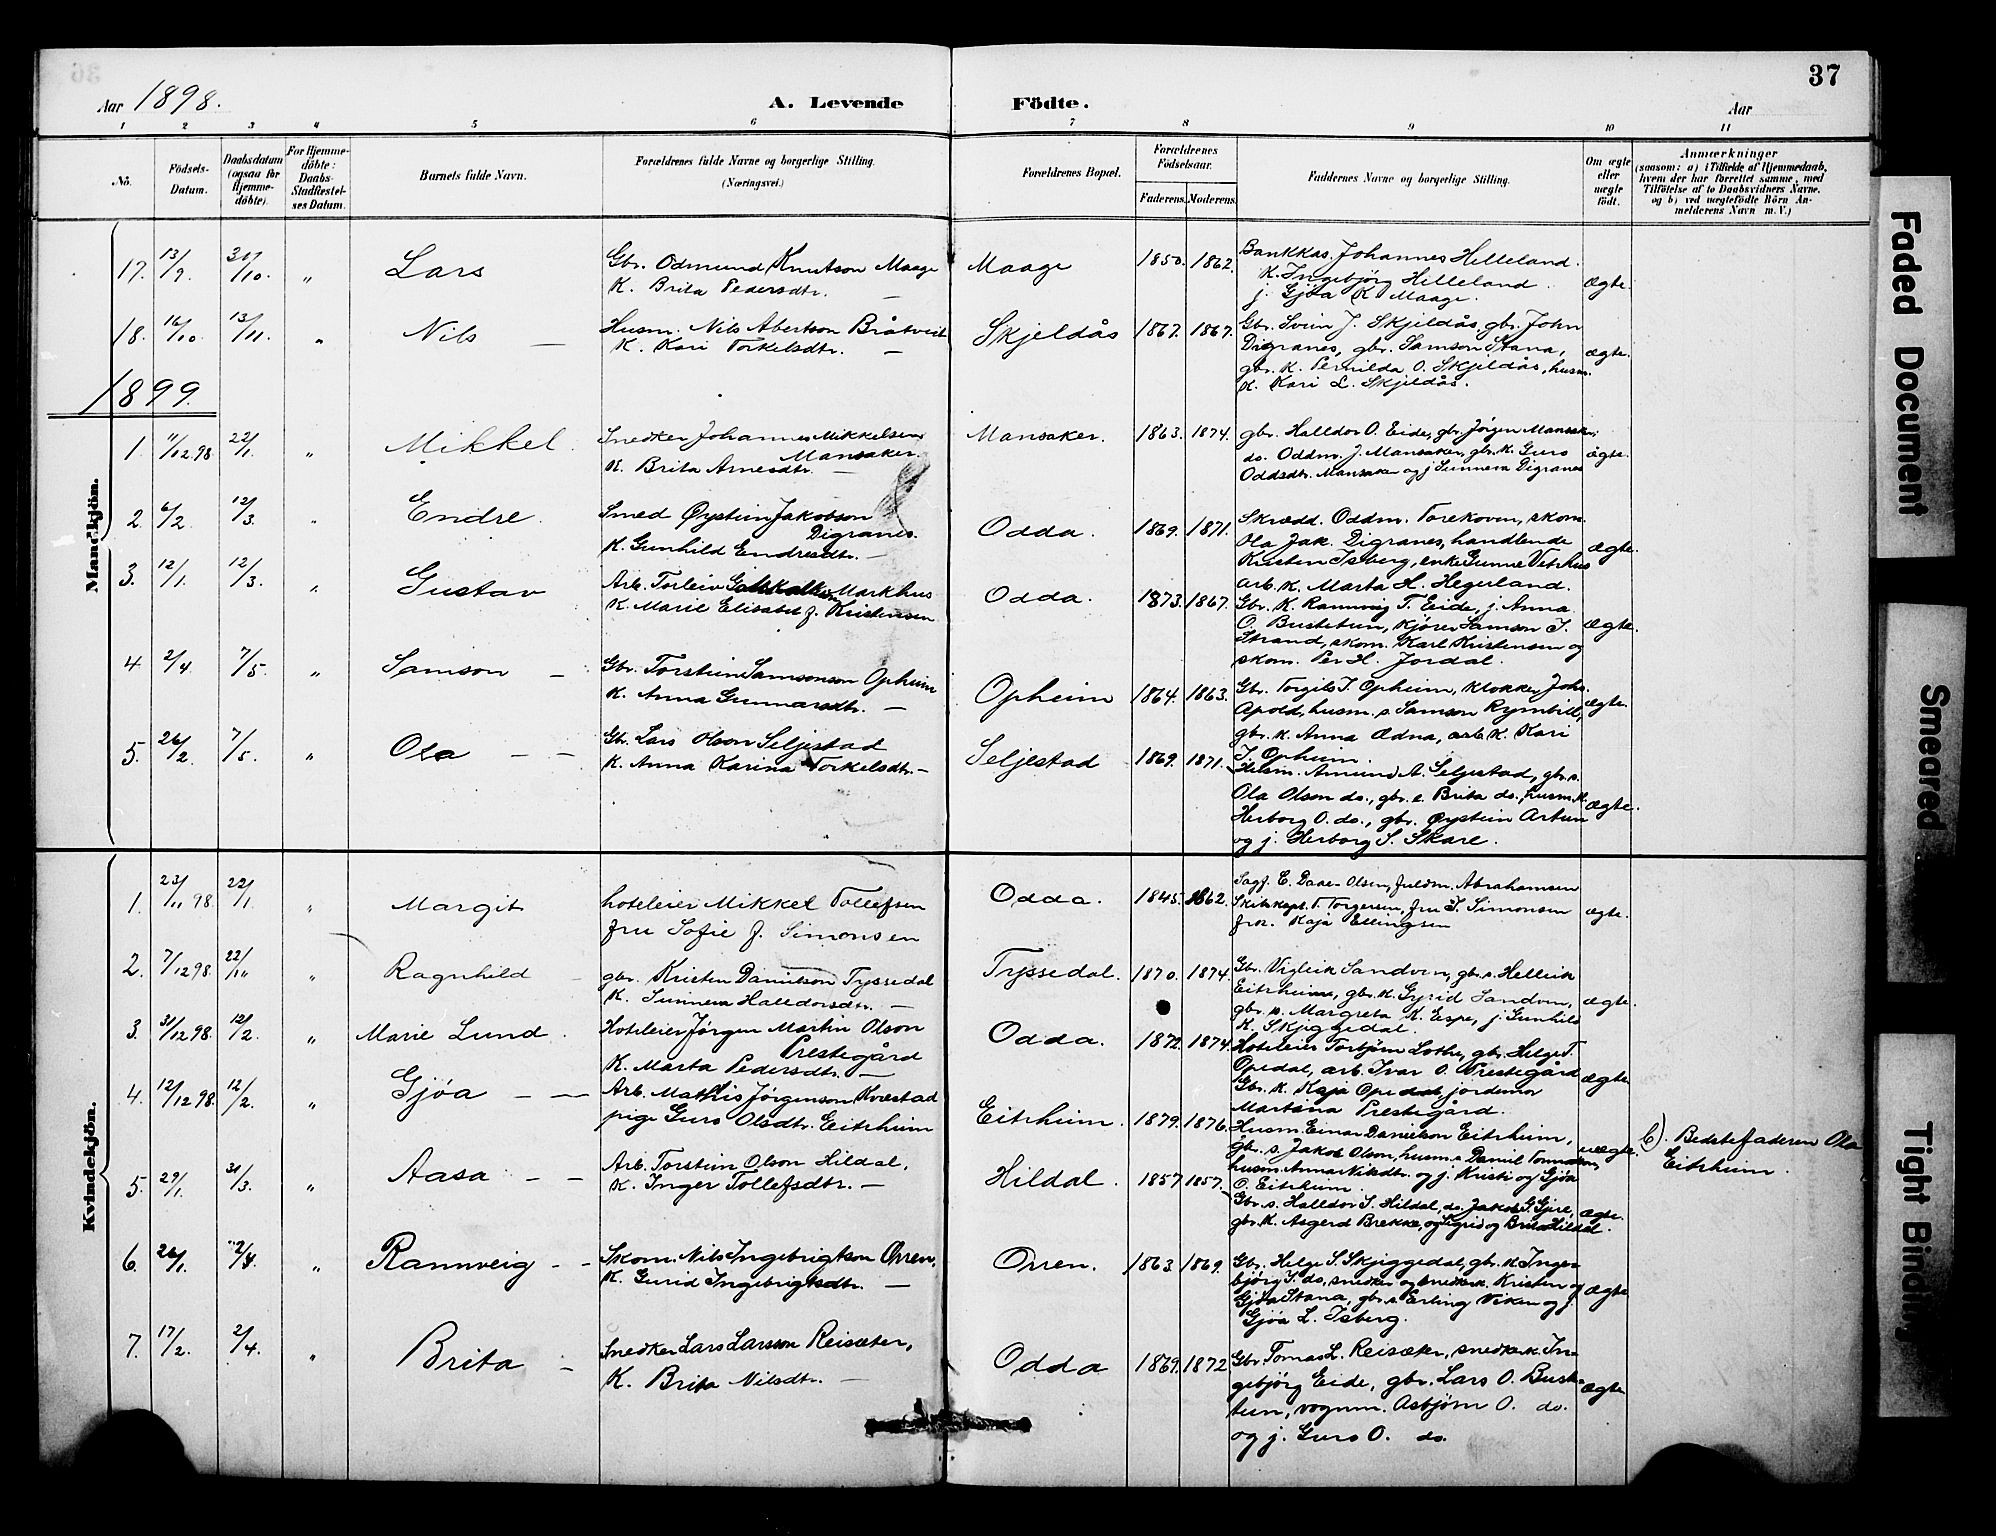 37
Aar 1898.
A. Levende Födte.
Aar
1 2 3 4 5 6 7 8 9 10 11
No.
Födsels-Datum.
Daabsdatum (ogsaa for Hjemme-döbte).
For Hjemme-döbte: Daabs-Stadfæstel-ses Datum.
Barnets fulde Navn.
Forældrenes fulde Navne og borgerlige Stilling.
(Næringsvei.)
Forældrenes Bopæl.
Forældrenes Födselsaar.
Faderens. Moderens.
Faddernes Navne og borgerlige Stilling.
Om ægte eller uægte födt.
Anmærkninger
(saasom: a) i Tilfælde af Hjemmedaab,
hvem der har forrettet samme, med
Tilföielse af to Daabsvidners Navne.
og b) ved uægtefödte Börn An-
melderens Navn m. V.)
Mandkjön.
17. 13/9. 30/10. " Lars
Gbr. Odmund Knutson Maage
K. Brita Pedersdtr. —
Maage 1850. 1862.
Bankkas. Johannes Helleland.
K. Ingebjörg Helleland.
j. Gjöa K. Maage.
ægte.
18. 16/10 13/11. " Nils —
Husm. Nils Abertson Bråtveit
K. Kari Torkelsdtr. —
Skjeldås 1867. 1867.
Gbr. Svein J. Skjeldås, gbr. John
Digranes, gbr. Samson Stana,
gbr. K. Pernilda O. Skjeldås, husm.
K. Kari L. Skjeldås.
ægte.
1899.
1. 11/12 98 22/1. " Mikkel.
Snedker Johannes Mikkelsen
Mansaker.
K. Brita Arnesdtr. —
Mansaker. 1863. 1874.
gbr. Halldor O. Eide, gbr. Jörgen Mansaker,
do. Oddm. J. Mansaker, gbr. K. Guro
Oddsdtr. Mansaker og j. Sunneva Digranes
ægte.
2. 6/2. 12/3. " Endre.
Smed Øystein Jakobson
Digranes.
K. Gunhild Endresdtr. —
Odda. 1869. 1871.
Skrædd. Oddm. Torekoven, skom.
Ola Jak. Digranes, handlende
Kristen Isberg, enke Gunne Vetrhus
arb. K. Marta H. Hegerland.
ægte.
3. 12/1. 12/3. " Gustav
Arb. Torleiv Markhus
K. Marie Elisabet f. Kristensen
Odda. 1873. 1867.
Gbr. K. Rannveig T. Eide, j. Anna
O. Bustetun, kjörer Samson I.
Strand, skom. Karl Kristensen og
skom. Per H. Jordal.
ægte.
4 2/4. 7/5. " Samson —
Gbr. Torstein Samsonson Opheim
K. Anna Gunnarsdtr. —
Opheim 1864. 1863.
Gbr. Torgils T. Opheim, Klokker Johs.
Apold, husm. s. Samson Rymbill,
gbr. K. Anna Ædna, arb. K. Kari
I. Opheim.
ægte.
5. 26/2. 7/5. " Ola — —
Gbr. Lars Olson Seljestad
K. Anna Karina Torkelsdtr. —
Seljestad 1869. 1871.
Husm. Amund A. Seljestad, gbr. s.
Ola Olson do., gbr. e. Brita do., husm. K.
Herborg O. do., gbr. Øystein Artun
og j. Herborg S. Skare.
ægte.
Kvindekjön.
1. 23/11 98 22/1. " Margit
hoteleier Mikkel Tollefsen
fru Sofie f. Simonsen
Odda. 1845. 1862.
Sagf. C. Daae-Olsen, fuldm. Abrahamsen
Skibskapt. T. Torgersen, fru I. Simonsen
frk. Kaja Ellingsen
ægte.
2. 7/12 98 22/1 " Ragnhild —
gbr. Kristen Danielson Tyssedal
K. Sunneva Halldorsdtr. —
Tyssedal. 1870. 1874.
Gbr. Vigleik Sandven, gbr. s. Helleik
Eitrheim, gbr. K. Gyrid Sandven,
gbr. s. Margreta K. Espe, j. Gunhild
K. Skjeggedal.
ægte.
3. 31/12 98. 12/2. " Marie Lund.
Hoteleier Jørgen Martin Olson
Prestegård
K. Marta Pedersdtr. —
Odda. 1872. 1874.
Hoteleier Torbjörn Lothe, gbr. Helge T.
Opedal, arb. Ivar O. Prestegård
Gbr. K. Kaja Opedal, jordemor
Martina Prestegård.
ægte.
4. 12/12 98. 12/2. " Gjöa — —
Arb. Mathis Jörgenson Kvestad
pige Guro Olsdtr. Eitrheim
Eitrheim. 1879. 1876.
Husm. Einar Danielson Eitrheim,
gbr. s. Jakob Olson, husm. s. Daniel
husm. Anna Nilsdtr. og j. Kristi og Gjöa
O. Eitrheim.
uægte.
b). Bedstefaderen Ola
Eitrheim.
5. 29/1. 31/3. " Aasa — —
Arb. Torstein Olson Hildal,
K. Inger Tollefsdtr. —
Hildal. 1857 1857.
Gbr. s. Halldor S. Hildal, do. Jakob G. Gjere,
gbr. K. Asgerd Brekke, og Sigrid og Brita Hildal.
ægte.
6. 26/1. 2/4. " Rannveig — —
Skom. Nils Ingebrigtson Orren.
K. Gurid Ingebrigtsdtr. —
Orren. 1863. 1869.
Gbr. Helge S. Skjeggedal, gbr. K. Inge-
björg I. do, snedker og snedkerk. Kristen og
Gjöa Stana, gbr. s. Erling Viken og j.
Gjöa L. Isberg.
ægte
7. 17/2. 2/4. " Brita —
Snedker Lars Larsson Reisæter,
K. Brita Nilsdtr. —
Odda 1869. 1872
Gbr. Tomas L. Reisæter, snedkerk. In-
gebjörg Eide, gbr. Lars O. Buste-
tun, vognm. Asbjörn O. do.
og j. Guro O. do.
ægte
Faded Document
Smeared
Tight Binding